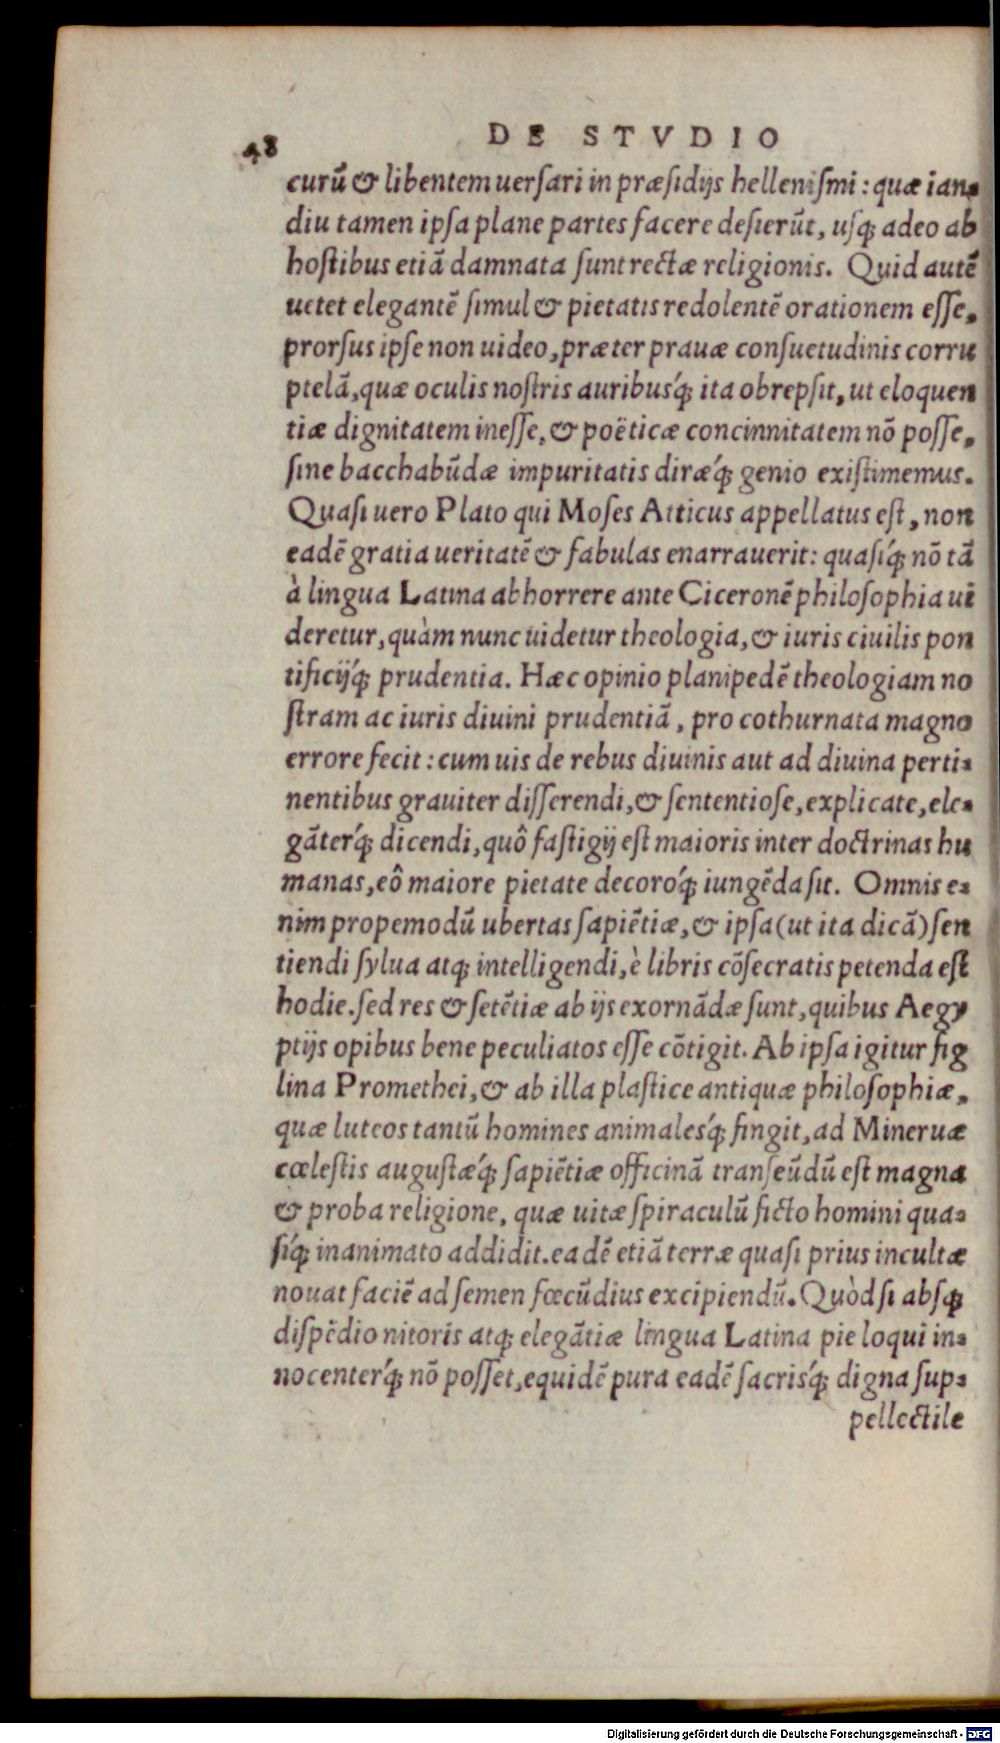 48
DE STVDIO
curū & libentem uerſari in præſidijs helleniſmi: quæ ian-
diu tamen ipſa plane partes facere deſierūt, uſq; adeo ab
hoſtibus etiā damnata ſunt rectæ religionis. Quid autē
uetet elegantē ſimul & pietatis redolentē orationem eſſe,
prorſus ipſe non uideo, præter prauæ conſuetudinis corru
ptelā, quæ oculis noſtris auribusq́; ita obrepſit, ut eloquen
tiæ dignitatem ineſſe, & poëticæ concinnitatem nō poſſe,
ſine bacchabūdæ impuritatis diræq́; genio exiſtimemus.
Quaſi uero Plato qui Moſes Atticus appellatus eſt, non
eadē gratia ueritatē & fabulas enarrauerit: quaſiq́; nō tā
à lingua Latina abhorrere ante Ciceronē philoſophia ui
deretur, quàm nunc uidetur theologia, & iuris ciuilis pon
tificijq́; prudentia. Hæc opinio planipedē theologiam no
ſtram ac iuris diuini prudentiā, pro cothurnata magno
errore fecit: cum uis de rebus diuinis aut ad diuina perti-
nentibus grauiter diſſerendi, & ſententioſe, explicate, ele-
gāterq́; dicendi, quô faſtigij eſt maioris inter doctrinas hu
manas, eô maiore pietate decoroq́; iungēda ſit. Omnis e-
nim propemodū ubertas ſapiētiæ, & ipſa (ut ita dicā) ſen
tiendi ſylua atq; intelligendi, è libris cōſecratis petenda eſt
hodie. ſed res & ſetētiæ ab ijs exornādæ ſunt, quibus Aegy
ptijs opibus bene peculiatos eſſe cōtigit. Ab ipſa igitur fig
lina Promethei, & ab illa plaſtice antiquæ philoſophiæ,
quæ luteos tantū homines animalesq́; fingit, ad Mineruæ
cœleſtis auguſtæq́; ſapiētiæ officinā tranſeūdū eſt magna
& proba religione, quæ uitæ ſpiraculū ficto homini qua-
ſiq́; inanimato addidit. eadē etiā terræ quaſi prius incultæ
nouat faciē ad ſemen fœcūdius excipiendū. Quòd ſi abſq;
diſpēdio nitoris atq; elegātiæ lingua Latina pie loqui in-
nocenterq́; nō poſſet, equidē pura eadē ſacrisq́; digna ſup-
pellectile
Digitalisierung gefördert durch die Deutsche Forschungsgemeinschaft - DFG